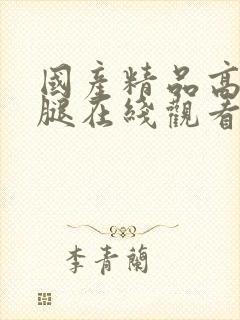 國產精品高
腿在綫觀看
李青蘭